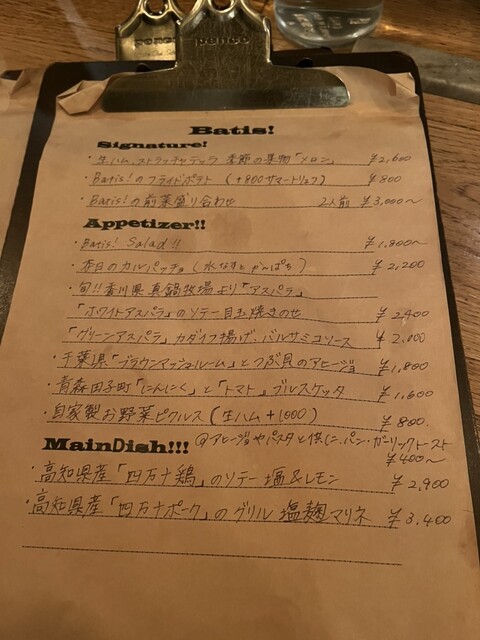 penco
penco
Batis!
Signature!
・生ハム、ストラッチャテッラ 季節の果物「メロン」 ¥2,600
・Batis!のフライドポテト (+800サマートリュフ) ¥800
・Batis!の前菜盛り合わせ 2人前 ¥3,000〜
Appetizer!!
・Batis! Salad!! ¥1,800〜
・本日のカルパッチョ(水なすとかんぱち) ¥2,200
・旬!!香川県 真鍋牧場より「アスパラ」
「ホワイトアスパラ」のソテー目玉焼きのせ ¥2400
「グリーンアスパラ」カダイフ揚げ、バルサミコソース ¥2,000
・千葉県「ブラウンマッシュルーム」とつぶ貝のアヒージョ ¥1,800
・青森田子町「にんにく」と「トマト」ブルスケッタ ¥1,600
・自家製お野菜ピクルス(生ハム+1000) ¥800.
MainDish!!! @アヒージョやパスタと供に、パン・ガーリックトースト
¥400〜
・高知県産「四万十鶏」のソテー 塩&レモン ¥2,900
・高知県産「四万十ポーク」のグリル 塩麹マリネ ¥3,400